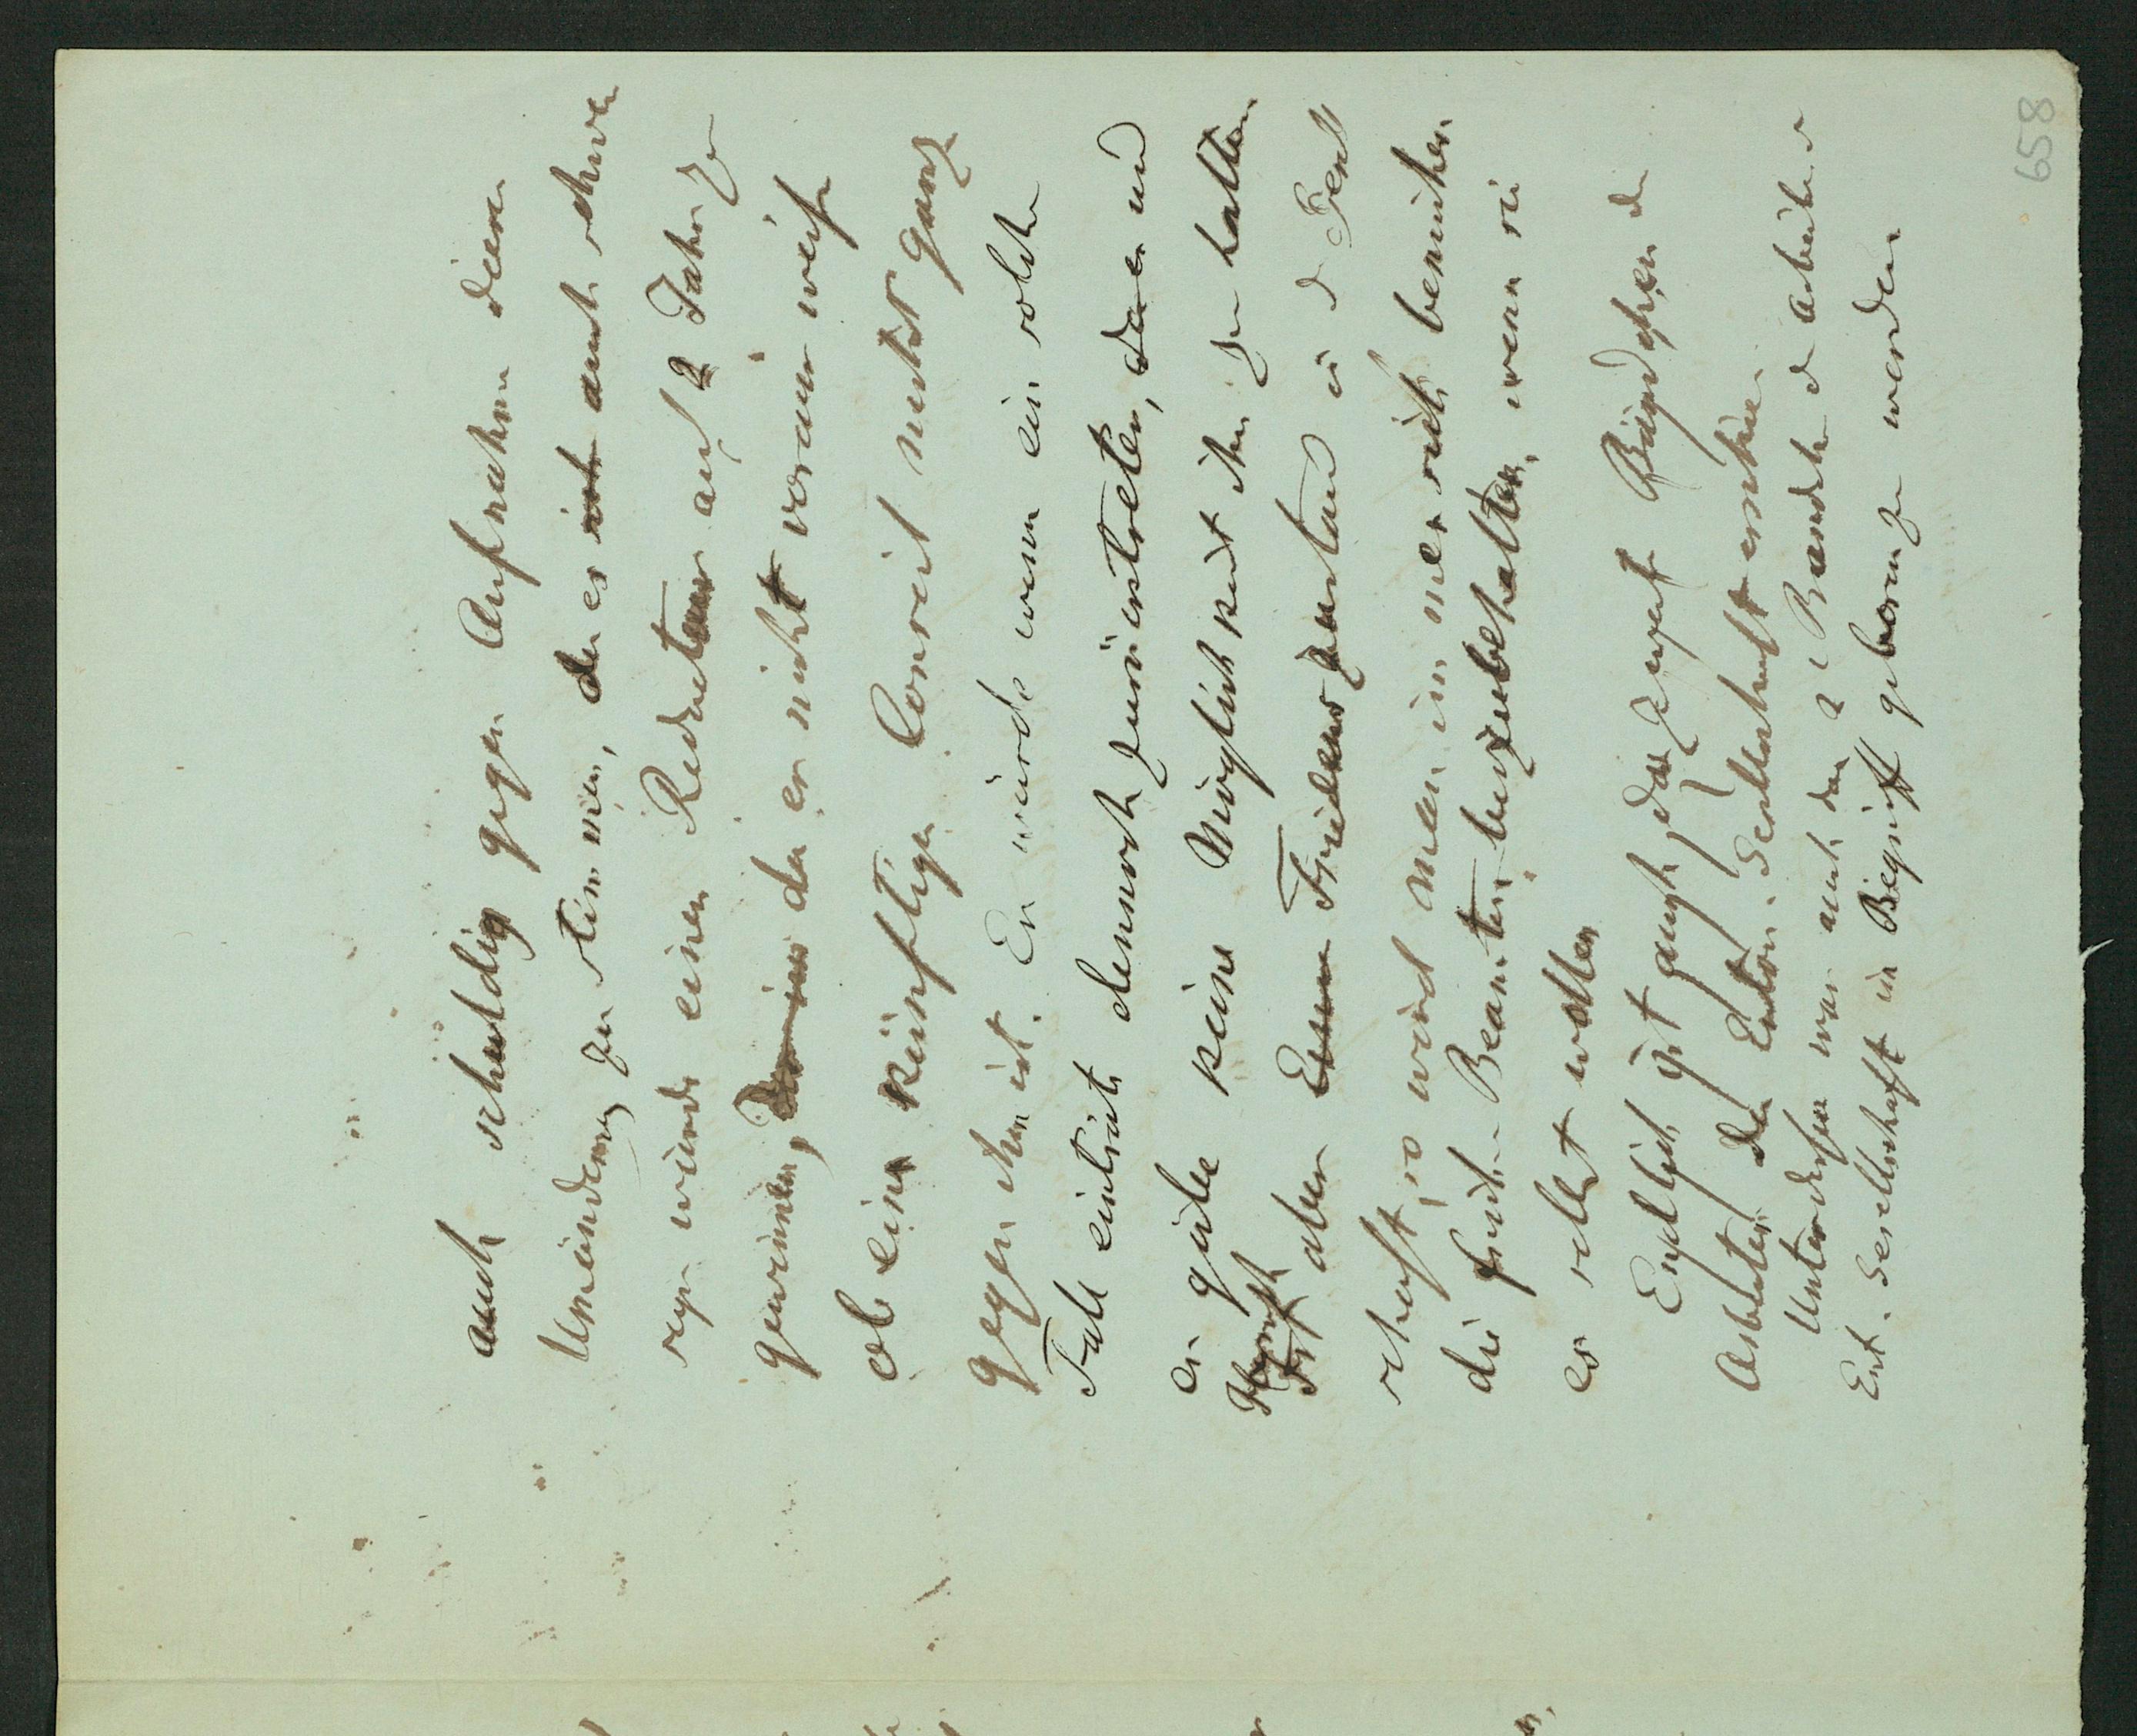 658
auch schuldig gegen Aufnahme dieser
Umänderung zu stimmen, da es ist auch schwer
sein würde einen Redacteur auf 2 Jahre zu
gewinnen, da er nicht voraus weiß
ob eine künftige Conseil nicht ganz
gegen ihn ist. Er würde wenn ein solcher
Fall einträte dennoch zurücktreten, und
es gäbe keine Möglichkeit ihn zu halten
Herrscht aber Friedenszustand i d Gesell
schaft, so wird man immer sich bemühen
die Beamten beizubehalten, wenn sie
es selbst wollen
Endlich ist auch das Bändchen der
Arbeiten der Entom. Gesellschaft erschienen
Unterdessen war auch das 2 Bändch d Arbeiten d
Ent. Gesellschaft in Begriff geboren zu werden